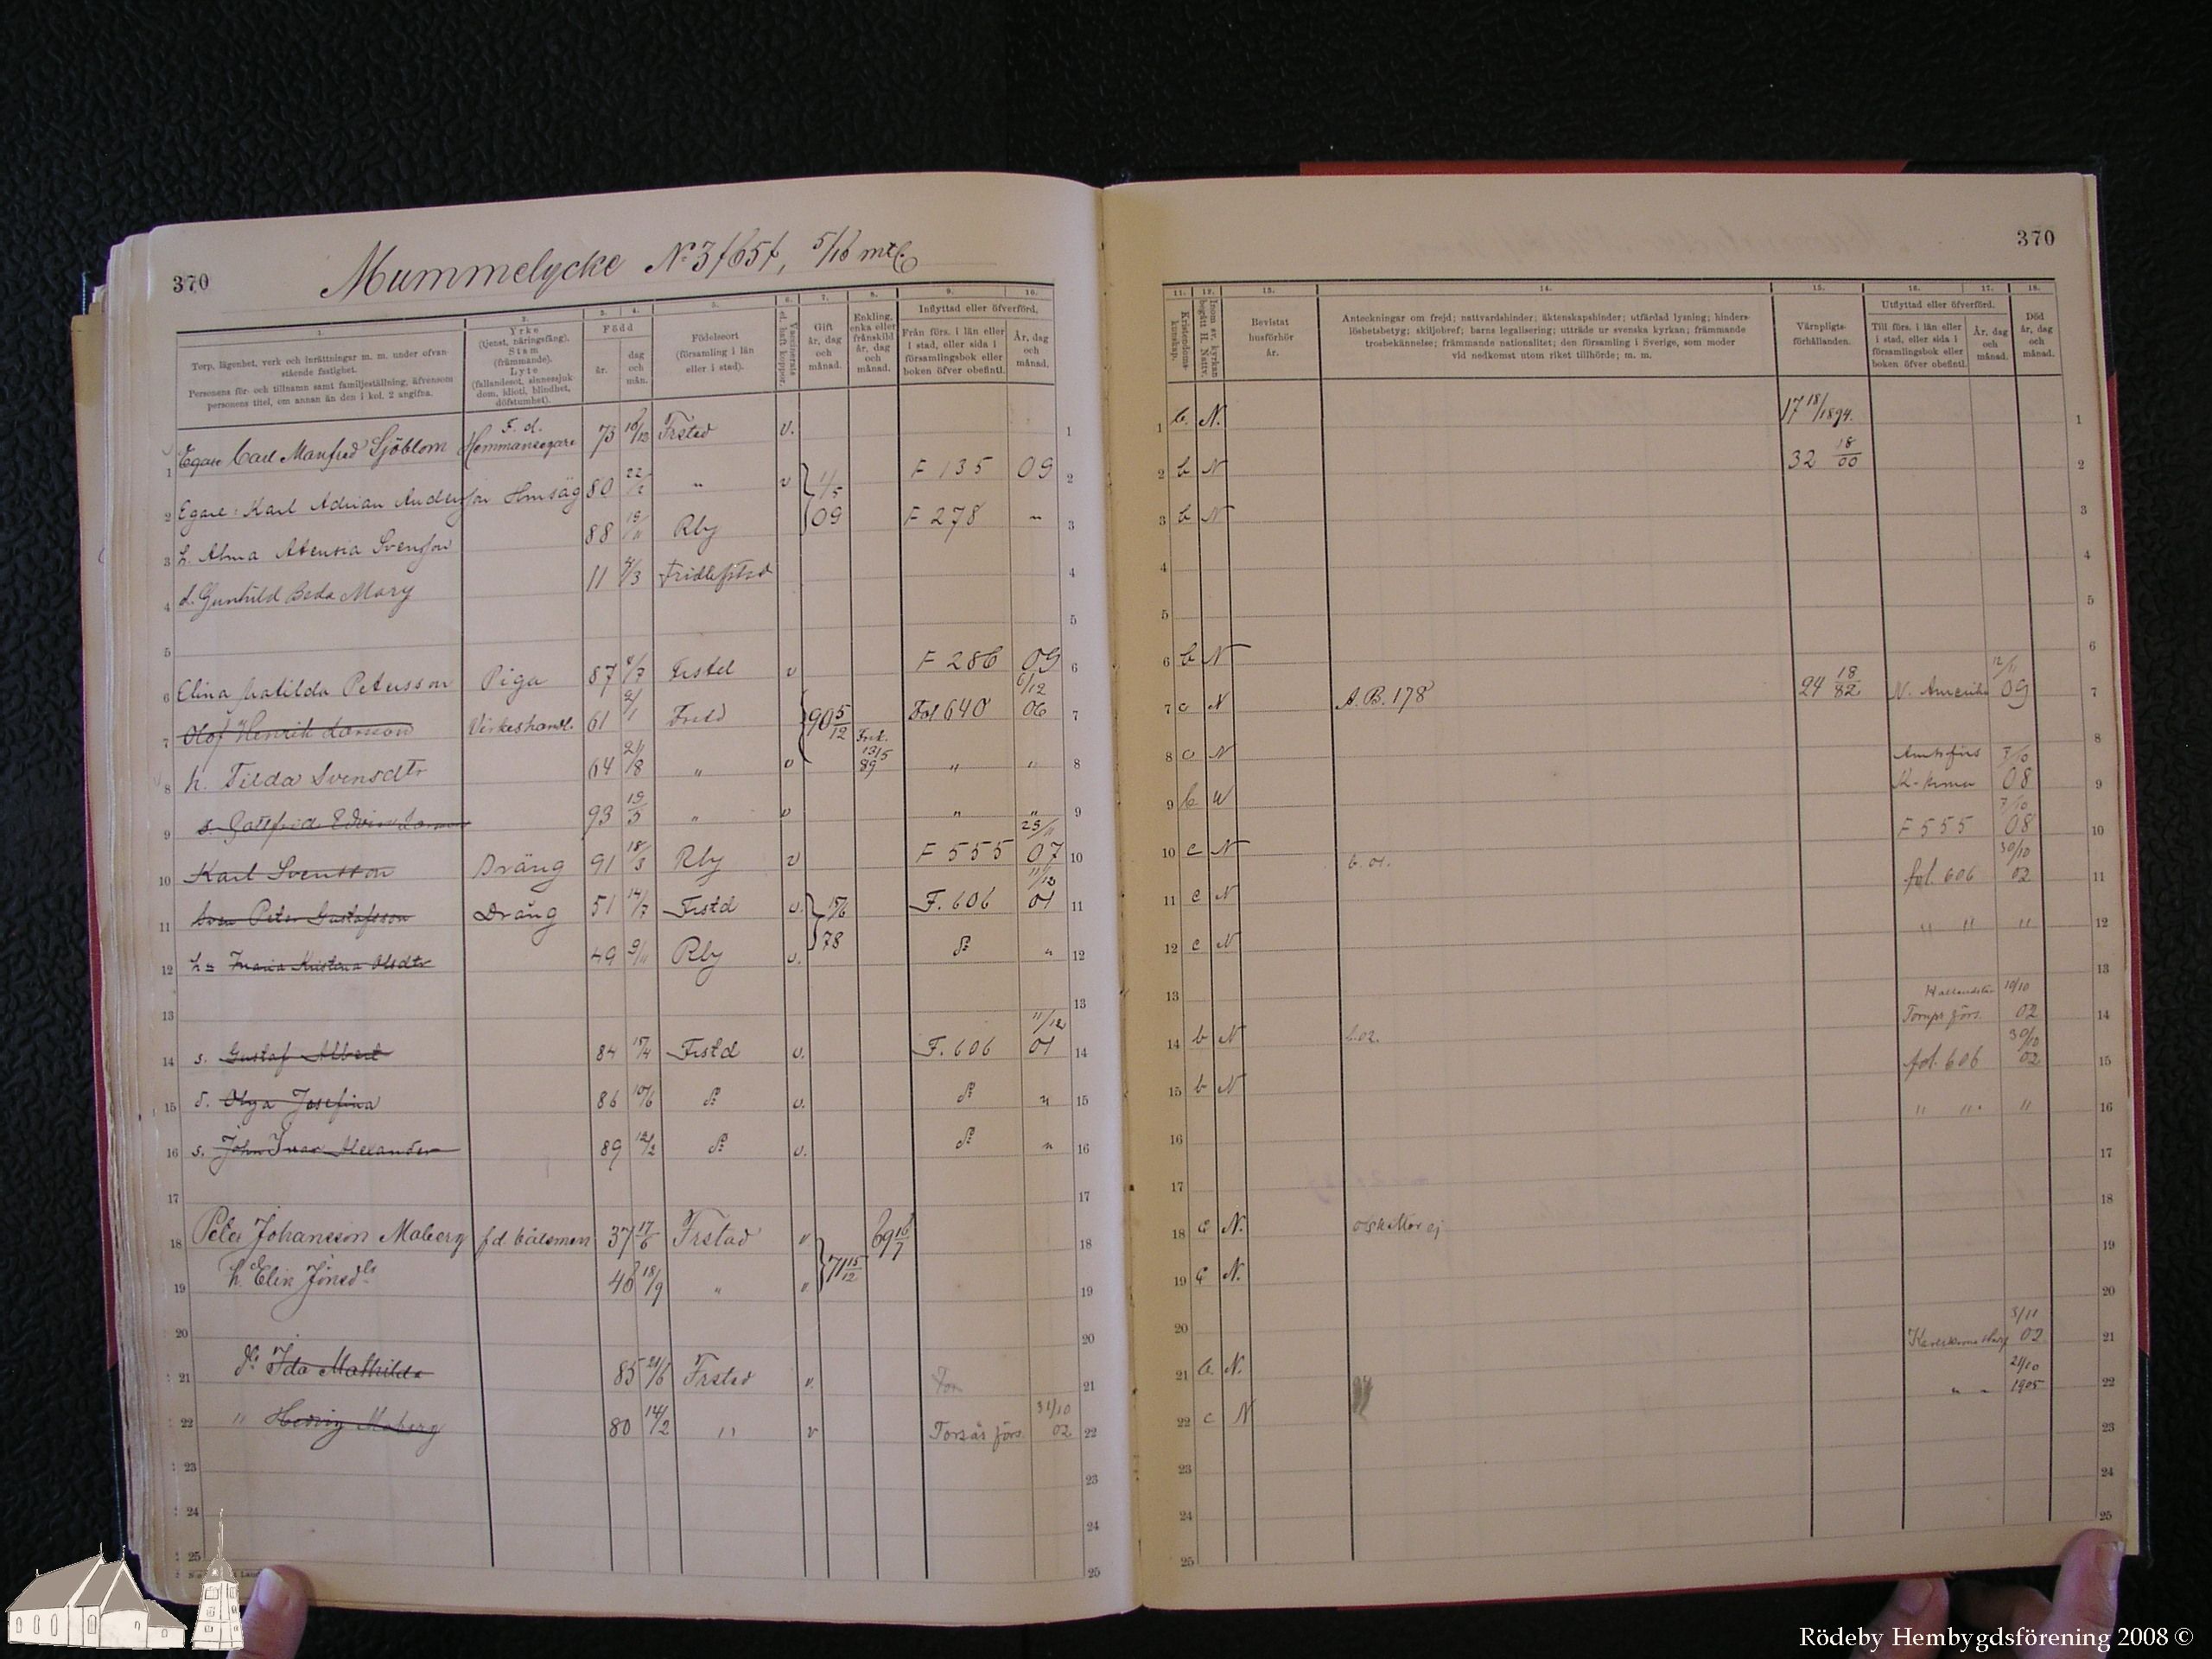 370
Mummelycke No 3, 5/16 mtl
370
1.
2.
3.
4.
5.
6.
7.
8.
9.
10.
Torp, lägenhet, verk och inrättningar m. m. under ofvanstående fastighet.
Personens för- och tillnamn samt familjeställning, äfvensom personens titel, om annan än den i kol. 2 angifna.
Yrke
(tjenst, näringsfång).
Stam
(främmande).
Lyte
(fallandesot, sinnessjukdom, idioti, blindhet, döfstumhet).
Född
år.
dag och mån.
Födelseort
(församling i län eller i stad).
Vaccinerats el. haft koppor.
Gift
år, dag och månad.
Enkling, enka eller frånskild år, dag och månad.
Inflyttad eller öfverförd.
Från förs. i län eller i stad, eller sida i församlingsbok eller boken öfver obefintl.
År, dag och månad.
11.
12.
13.
14.
15.
16.
17.
18.
Kristendomskunskap.
Inom sv. kyrkan begått H. Nattv.
Bevistat husförhör år.
Anteckningar om frejd; nattvardshinder; äktenskapshinder; utfärdad lysning; hinderslöshetsbetyg; skiljobref; barns legalisering; utträde ur svenska kyrkan; främmande
trosbekännelse; främmande nationalitet; den församling i Sverige, som moder
vid nedkomst utom riket tillhörde; m. m.
Värnpligtsförhållanden.
Utflyttad eller öfverförd.
Till förs. i län eller i stad, eller sida i församlingsbok eller boken öfver obefintl.
År, dag och månad.
Död
år, dag och månad.
1 Egare Carl Manfred Sjöblom F. d. Hemmansegare 73 Frstad v. 1 b. N. 17 18/1894. 1
2 Egare: Karl Adrian Andersson Hmsäg 80 22/2 " v 1/5 09 F 135 09 2 b N 32 18/00 2
3 h. Alma Svensson 88 19/11 Rby F 278 " 3 b N 3
4 d. Gunhild Beda Mary 11 /3 Fridlefstad 4
5
6 Elina Matilda Petersson Piga 87 /7 Frstd v F 286 09 6 b N 6
7 Olof Henrik Larsson Virkeshandl. 61 2/1 Frstd 90 5/12 Fol 640 6/12 06 7 c N A. B. 178 24 18/82 N. Amerika 12/11 09 7
8 h. Tilda Svensdtr 64 21/8 " v 89 13/5 " " 8 c N 8
9 s. Gottfrid Edvin Larsson 93 19/5 " v " " 9 b N K-krona 7/10 08 9
10 Karl Svensson Dräng 91 18/3 Rby v F 555 23/11 07 10 c N F 555 7/10 08 10
11 Sven Peter Gustafsson Dräng 51 14/7 Frstd v. 15/6 78 F. 606 11/12 01 11 c N b. 01. fol. 606 30/10 02 11
12 h= Maria Kristina Olsdtr 49 9/11 Rby v. do " 12 c N " " " 12
13
14 s. Gustaf Albert 84 15/4 Frstd v. F. 606 11/12 01 14 b N b. 02. Torups förs. 10/10 02 14
15 d. Olga Josefina 86 10/6 do v. do " 15 b N fol. 606 30/10 02 15
16 s. John Ivar Alexander 89 12/2 do v. do " 16 " " " 16
17
18 Peter Johansson Maberg f.d. båtsman 37 17/6 Frstad v 71 15/12 69 16/7 18 c N. 18
19 h. Elin Jonsdtr 46 18/9 " v. 19 c N. 19
20
21 dr Ida Mathilda 85 21/6 Frstad v. 21 b. N. 3/11 02 21
22 " Hedvig Maberg 80 14/2 " v Torsås förs. 31/10 02 22 c N " " 21/10 1905 22
23
24
25
Rödeby Hembygdsförening 2008 ©